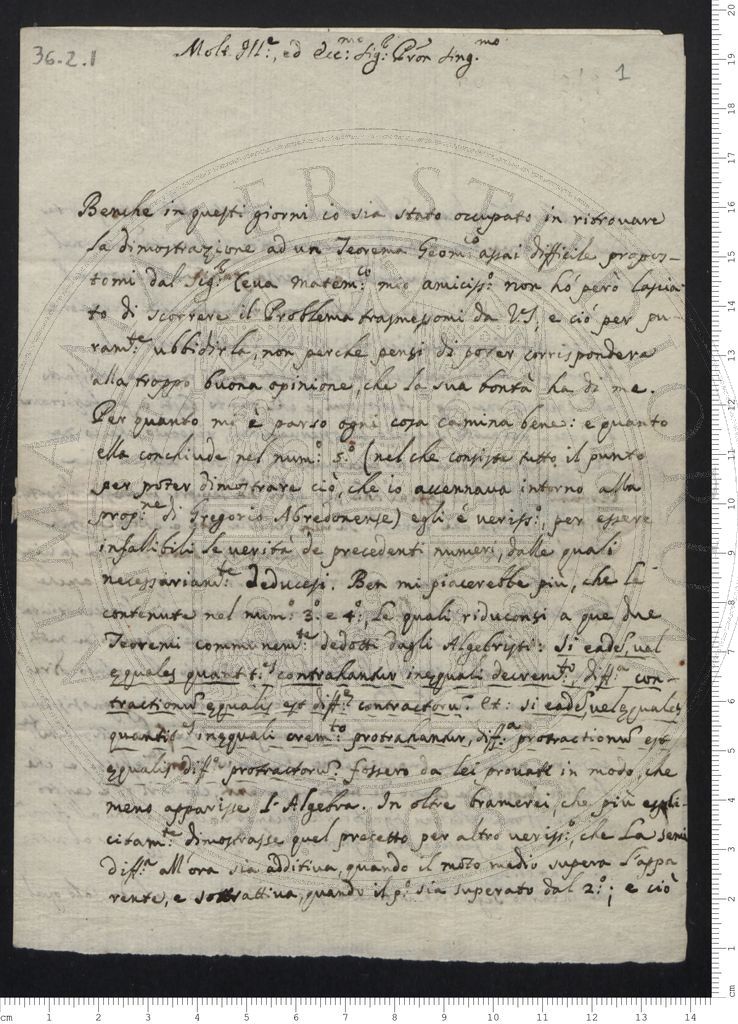 36.2.1
1
Molt Ill:e, ed Ecc:mo Sig:r Pron Sing.mo
Benche in questi giorni io sia stato occupato in ritrovare
la dimostrazione ad un Teorema Geom:co assai difficile propos-
tomi dal Sig:r Ceva Matem:co mio amiciss:o non hó però lascia-
to di scorrere il Problema trasmessomi da VS, e ció per pu-
ram:te ubbidirla, non perche pensi di poter corrispondere
alla troppo buona opinione, che la sua bontà ha di me.
Per quanto mi è parso ogni cosa camina bene: e quanto
ella conchiude nel num:o 5:o (nel che consiste tutto il punto
per poter dimostrare ciò, che io accennava intorno alla
prop:ne di Gregorio Abredonense) egli é veriss:o, per essere
infallibili le verità de precedenti numeri, dalle quali
necessariam:te deducesi. Ben mi piacerebbe piu, che le
contenute nel num:o 3:o e 4:o, le quali riduconsi a que due
Teoremi communem:te dedotti dagli Algebristi: Si eades, vel
equales quantt:es contrahantur inequali decrem:to, diff:a con-
tractionu equalis est diff:e contractoru. Et: si eades, vel equales
quantit:es inequali crem:to protrahantur, diff:a protractionu est
equalis diff:e protractoru. fossero da lei provati in modo, che
meno apparisse l'Algebra. In oltre bramerei, che più espli-
citam:te dimostrasse quel precetto per altro veriss:o, che La semi
diff:a all'ora sia additiva, quando il moto medio supera l'appa
rente, e sottrattiva, quando il p:o sia superato dal 2:o; e ciò